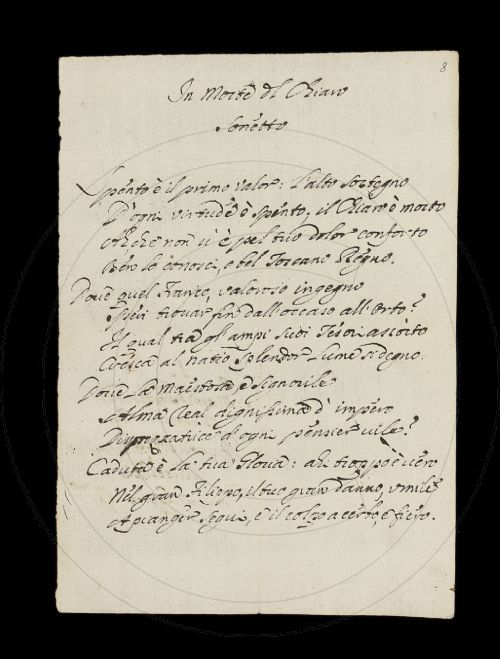 8
In Morte dl Chiaro
Sonetto
Spento è il primo valor: l'alto sostegno
D'ogni virtude è spento, il Chiaro è morto
Ahi che non v'è pel tuo dolor conforto
Ben lo conosci, o bel Toscano Regno.
Dove quel Franco, valoroso ingegno
Puoi trovar fin dall'occaso all'Orto?
Il qual tra gli ampi suoi Tesori assorto
Cresca al natio splendor lume sì degno.
Dove la Maestosa e Signorile
Alma Real dignissima d'impero
Disprezzatrice d'ogni pensier vile?
Caduta è la tua Gloria: ahi troppo è vero
Nel gran Filippo, il tuo gran danno, umile
A pianger segui, e il colpo acerbo, e fiero.